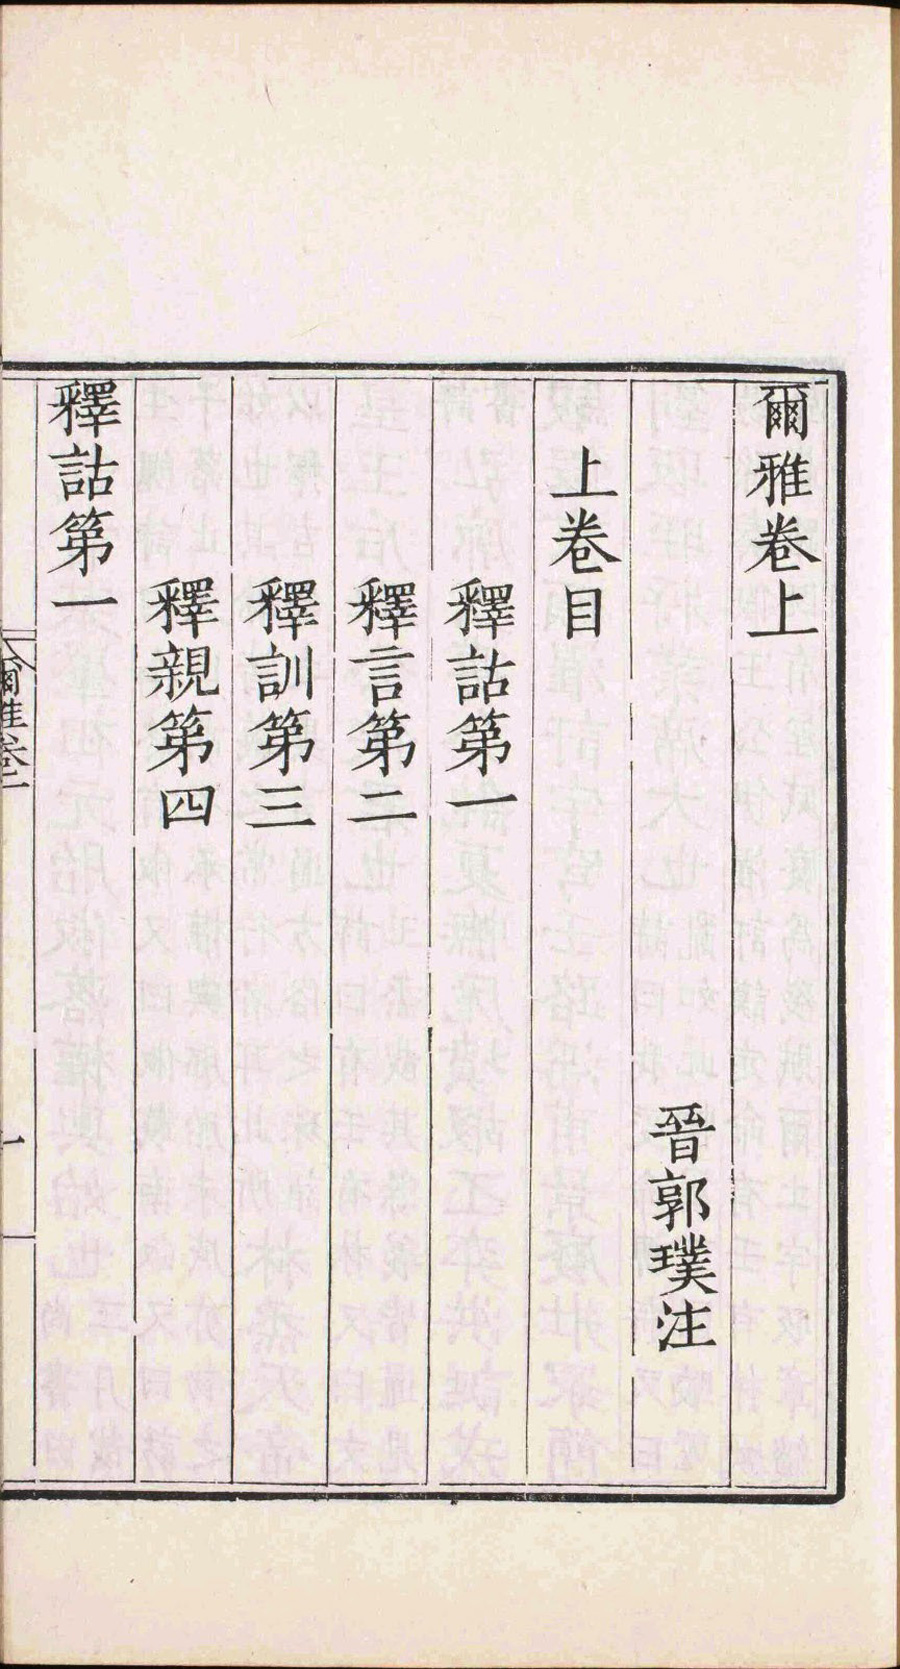 爾雅卷上
晉郭璞注
上卷目
釋詁第一
釋言第二
釋訓第三
釋親第四
釋詁第一
爾雅卷上
一